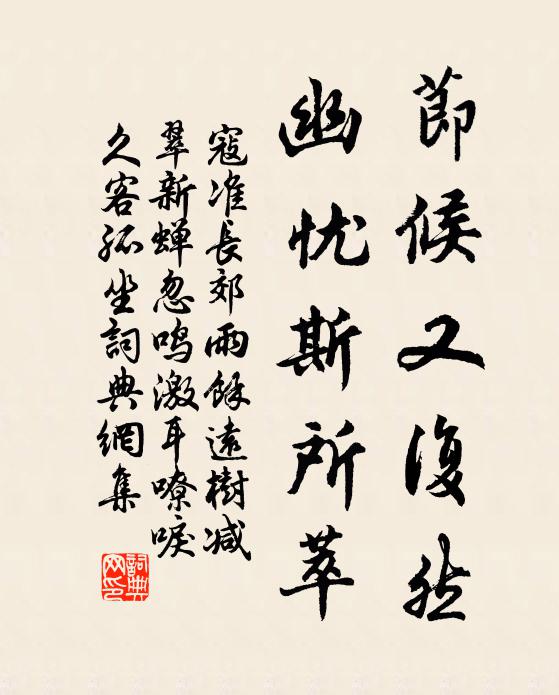 節候又復然
幽忧斯所萃
寇准長郊雨餘遠樹减
翠新蝉忽鸣激耳嘹唳
久客孤坐詞典網集
詞典
网印